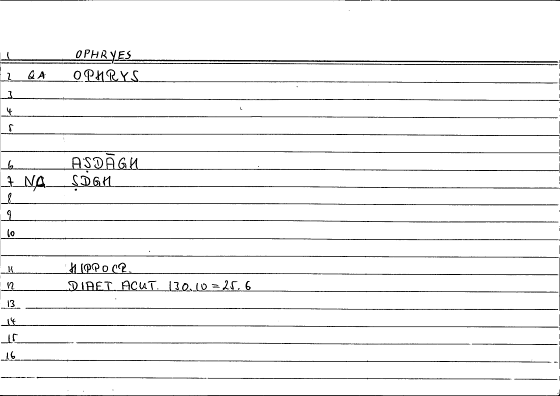 1 OPHRYES
2 GA OPHRYS
3
4
5
6 AṢDĀGH
7 NA ṢDGH
8
9
10
11 HIPPOCR.
12 DIAET. ACUT. 130.10 = 25.6
13
14
15
16